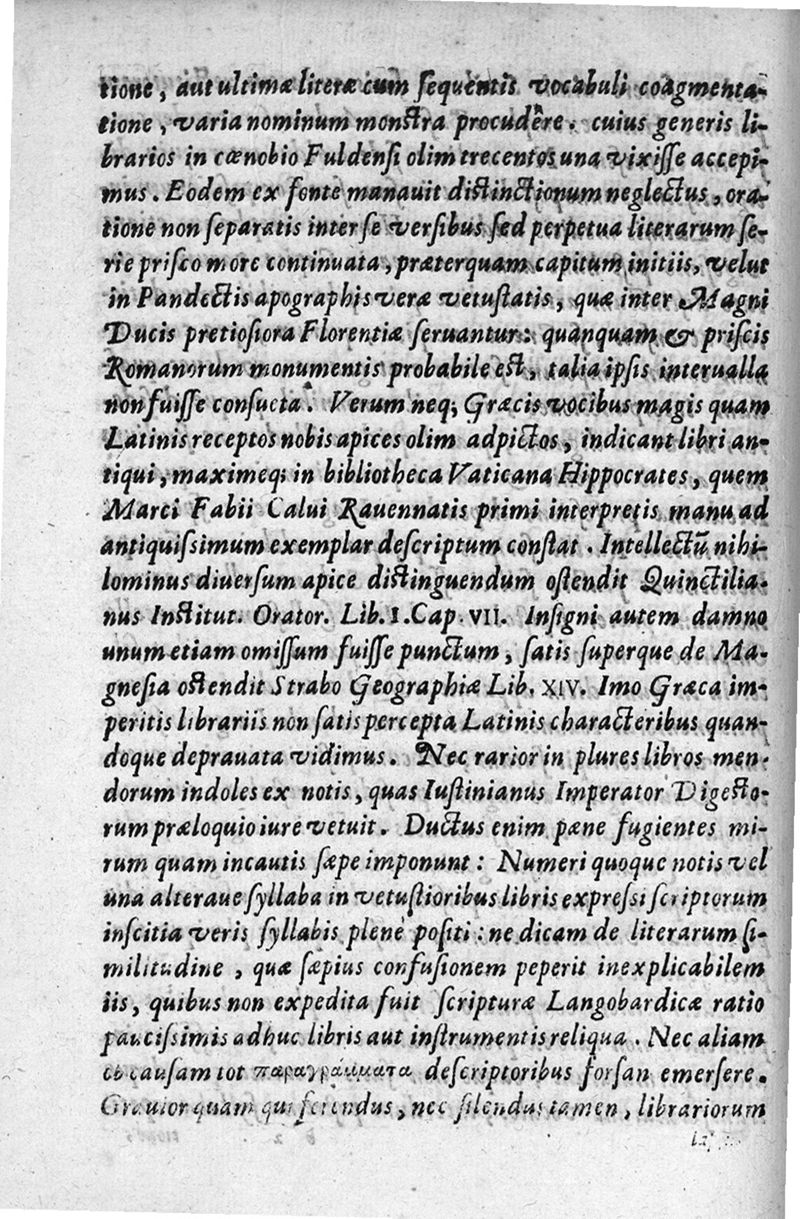 tione, aut ultimæ literæ cum ſequentis vocabuli coagmenta-
tione, varia nominum monſtra procudêre. cuius generis li-
brarios in cœnobio Fuldenſi olim trecentos una vixiſſe accepi-
mus. Eodem ex fonte manauit diſtinctionum neglectus, ora-
tione non ſeparatis inter ſe verſibus ſed perpetua literarum ſe-
rie priſco more continuata, præterquam capitum initiis, velut
in Pandectis apographis veræ vetuſtatis, quæ inter Magni
Ducis pretioſiora Florentiæ ſeruantur: quanquam & priſcis
Romanorum monumentis probabile eſt, talia ipſis interualla
non fuiſſe conſueta. Verum neq; Græcis vocibus magis quam
Latinis receptos nobis apices olim adpictos, indicant libri an-
tiqui, maximeq; in bibliotheca Vaticana Hippocrates, quem
Marci Fabii Calui Rauennatis primi interpretis manu ad
antiquiſsimum exemplar deſcriptum conſtat. Intellectū nihi-
lominus diuerſum apice diſtinguendum oſtendit Quinctilia-
nus Inſtitut. Orator. Lib. I. Cap. VII. Inſigni autem damno
unum etiam omiſſum fuiſſe punctum, ſatis ſuperque de Ma-
gneſia oſtendit Strabo Geographiæ Lib. XIV. Imo Græca im-
peritis librariis non ſatis percepta Latinis characteribus quan-
doque deprauata vidimus. Nec rarior in plures libros men-
dorum indoles ex notis, quas Iuſtinianus Imperator Digeſto-
rum præloquio iure vetuit. Ductus enim pæne fugientes mi-
rum quam incautis ſæpe imponunt: Numeri quoque notis vel
una alteraue ſyllaba in vetuſtioribus libris expreſsi ſcriptorum
inſcitia veris ſyllabis plenè poſiti: ne dicam de literarum ſi-
militudine, quæ ſæpius confuſionem peperit inexplicabilem
iis, quibus non expedita fuit ſcripturæ Langobardicæ ratio
pauciſsimis adhuc libris aut inſtrumentis reliqua. Nec aliam
ob cauſam tot παραγράμματα deſcriptoribus forſan emerſere.
Grauior quam qui ferendus, nec ſilendus tamen, librariorum